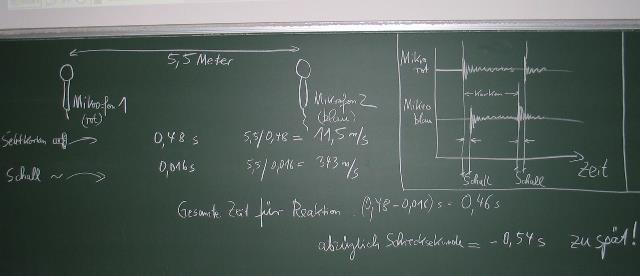 5,5 Meter
Mikrofon 1
(rot)
Mikrofon 2
(blau)
0,48 s 5,5/0,48 = 11,5 m/s
Schall ~ 0,016 s 5,5/0,016 = 343 m/s
Gesamte Zeit für Reaktion: (0,48-0,016) s = 0,46 s
abzüglich Schrecksekunde = -0,54 s zu spät!
Mikro
rot
Korken
Mikro
blau
Zeit
Schall Schall